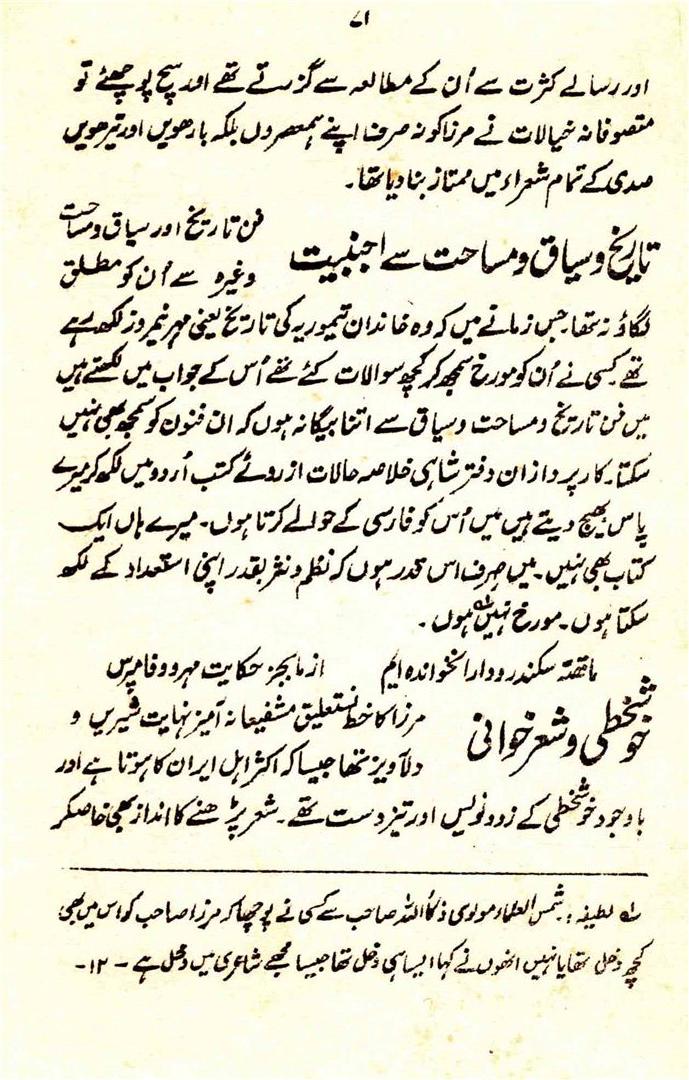 ۷۱
اور رسالے کثرت سے اُن کے مطالعہ سے گزرتے تھے اور سچ پوچھئے تو
متصوفانہ خیالات نے مرزا کو نہ صرف اپنے ہمعصروں بلکہ بارھویں اور تیرھویں
صدی کے تمام شعراء میں ممتاز بنا دیا تھا۔
تاریخ و سیاق و مساحت سے اجنبیت
فن تاریخ اور سیاق و مساحت
وغیرہ سے اُن کو مطلق
لگاؤ نہ تھا۔ جس زمانے میں کہ وہ خاندان تیموریہ کی تاریخ یعنی مہر نیمروز لکھ رہے
تھے کسی نے اُن کو مورخ سمجھ کر کچھ سوالات کئے تھے اُس کے جواب میں لکھتے ہیں
میں فن تاریخ و مساحت و سیاق سے اتنا بیگانہ ہوں کہ ان فنون کو سمجھ بھی نہیں
سکتا۔ کارپردازان دفتر شاہی خلاصہ حالات از روئے کتب اُردو میں لکھ کر میرے
پاس بھیج دیتے ہیں میں اُس کو فارسی کے حوالے کرتا ہوں۔ میرے ہاں ایک
کتاب بھی نہیں۔ میں صرف اس قدر ہوں کہ نظم و نثر بقدر اپنی استعداد کے لکھ
سکتا ہوں۔ مورخ نہیں ہوں۔
ما قصّہ سکندر و دارا نخواندہ ایم از ما بجز حکایت مہر و وفا مپرس
خوشخطی و شعر خوانی
مرزا کا خط نستعلیق مشفیعانہ آمیز نہایت شیریں و
دلآویز تھا جیسا کہ اکثر اہل ایران کا ہوتا ہے اور
باوجود خوشخطی کے زود نویس اور تیز دست تھے۔ شعر پڑھنے کا انداز بھی خاصکر
؂ لطیفہ: شمس العلماء مولوی ذکاء اللہ صاحب سے کسی نے پوچھا کہ مرزا صاحب کو اس میں بھی
کچھ دخل تھا یا نہیں انھوں نے کہا ایسا ہی دخل تھا جیسا مجھے شاعری میں دخل ہے - ۱۲-